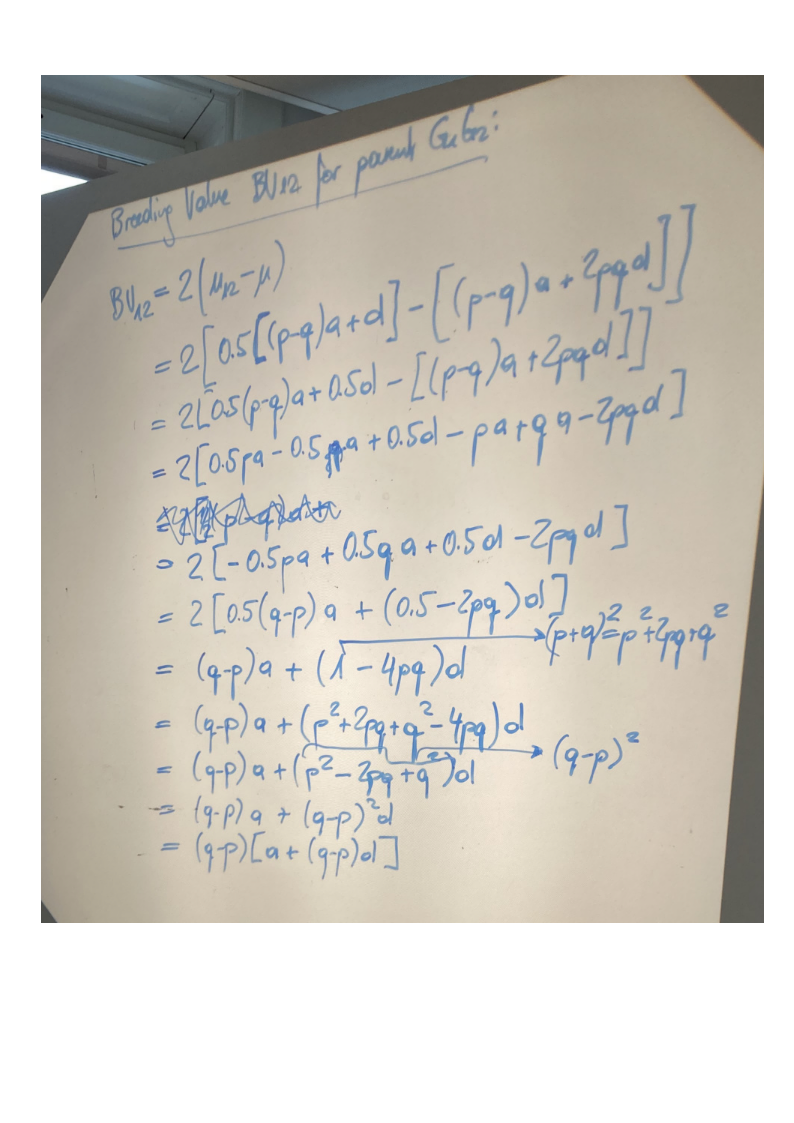 Breeding Value BV12 for parent G1G2:
BV₁₂ = 2(μ₁₂ - μ)
= 2[0.5[(p-q)a+d] - [(p-q)a + 2pqd]]
= 2[0.5(p-q)a + 0.5d - [(p-q)a + 2pqd]]
= 2[0.5pa - 0.5qa + 0.5d - pa + qa - 2pqd]
= 2[-0.5pa + 0.5qa + 0.5d - 2pqd]
= 2[0.5(q-p)a + (0.5-2pq)d]
(p+q)² = p²+2pq+q²
= (q-p)a + (1-4pq)d
= (q-p)a + (p²+2pq+q²-4pq)d
(q-p)²
= (q-p)a + (p²-2pq+q²)d
= (q-p)a + (q-p)²d
= (q-p)[a+(q-p)d]